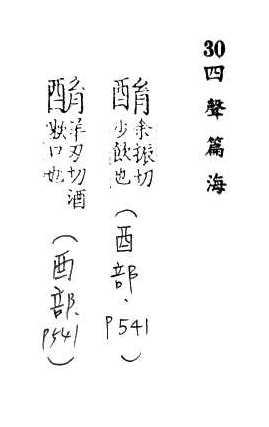 30四聲篇海
酳余振切少飲也（酉部、P541）
酳羊刃切酒漱口也（酉部、P541）